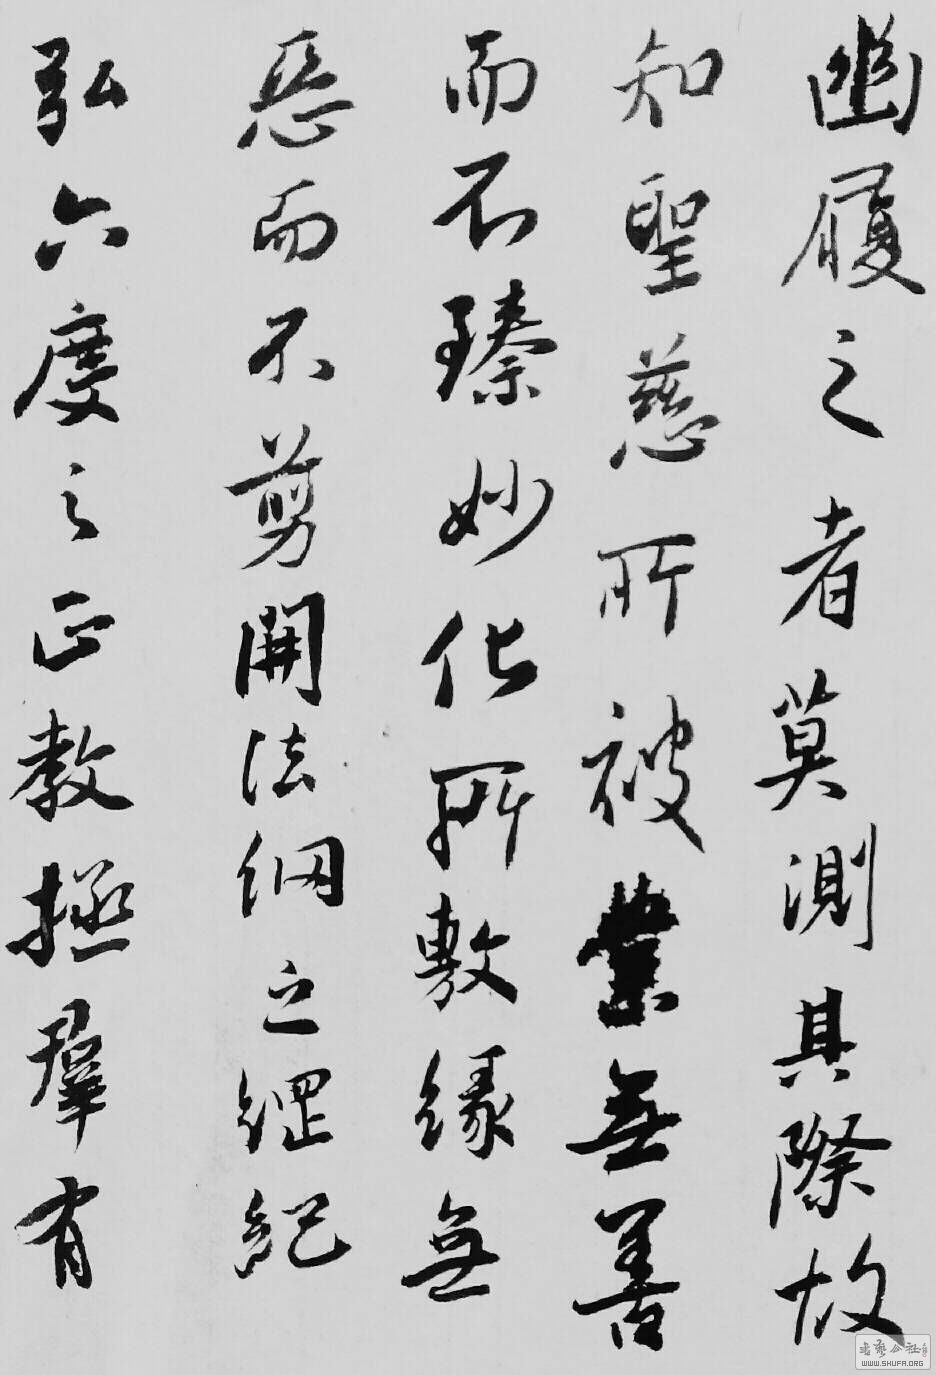 幽履之者莫測其際故
知聖慈所被業無善
而不臻妙化所敷緣無
惡而不剪開法網之綱紀
弘六度之正教拯羣有
書藝公社
WWW.SHUFA.ORG